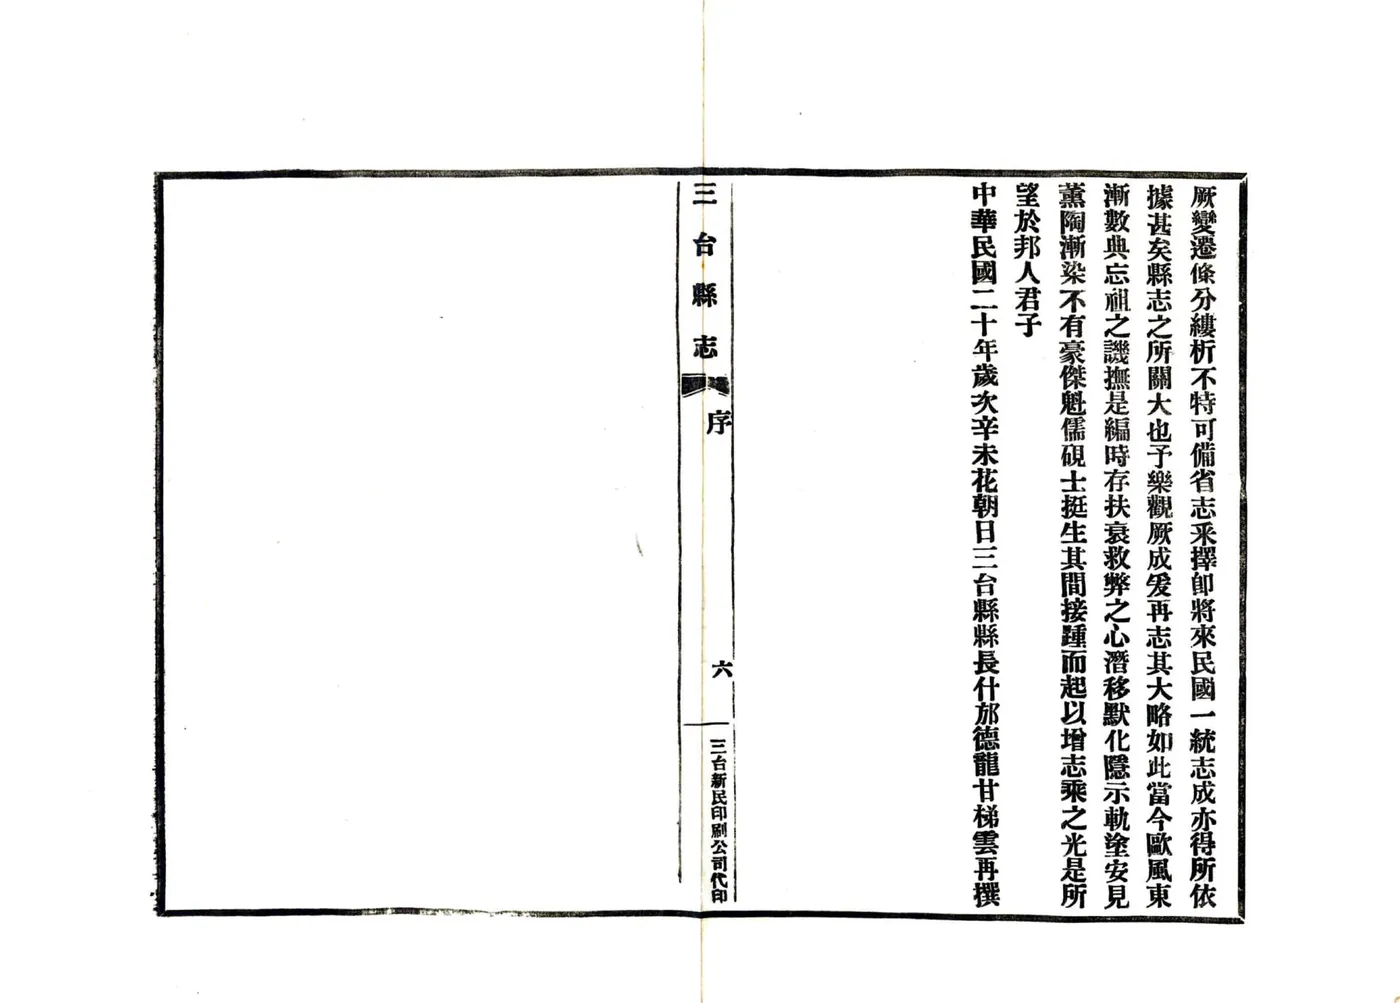 厥變遷條分縷析不特可備省志采擇卽將來民國一統志成亦得所依
據甚矣縣志之所關大也予樂觀厥成爰再志其大略如此當今歐風東
漸數典忘祖之譏撫是編時存扶衰救弊之心潛移默化隱示軌塗安見
薰陶漸染不有豪傑魁儒碩士挺生其間接踵而起以增志乘之光是所
望於邦人君子
中華民國二十年歲次辛未花朝日三台縣縣長什邡德龍甘梯雲再撰
三台縣志
序
六
三台新民印刷公司代印